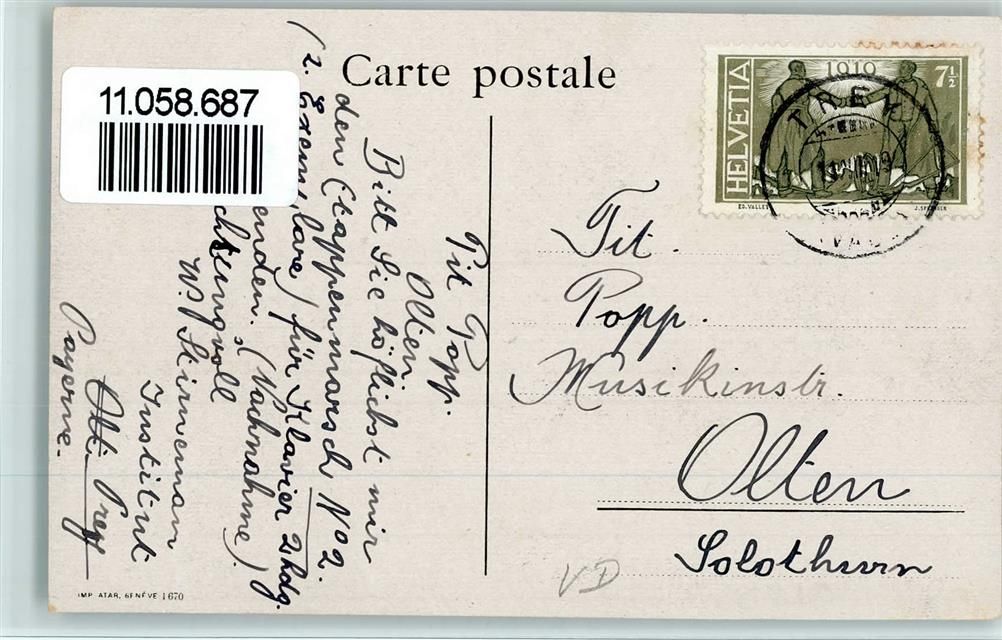 Carte postale
11.058.687
HELVETIA
1919
7½
ED. VALLET
TREY
Tit Popp.
Olten.
Bitt Sie höflichst mir
den Etappenmarsch No 2.
(2. Exemplare) für Klavier 2hdg.
senden. (Nachnahme)
chtungvoll
W. Stirneman
Institut
Trey
Payerne.
Tit.
Popp.
Musikinstr.
Olten
Solothurn
VD
IMP. ATAR, GENÈVE 1670